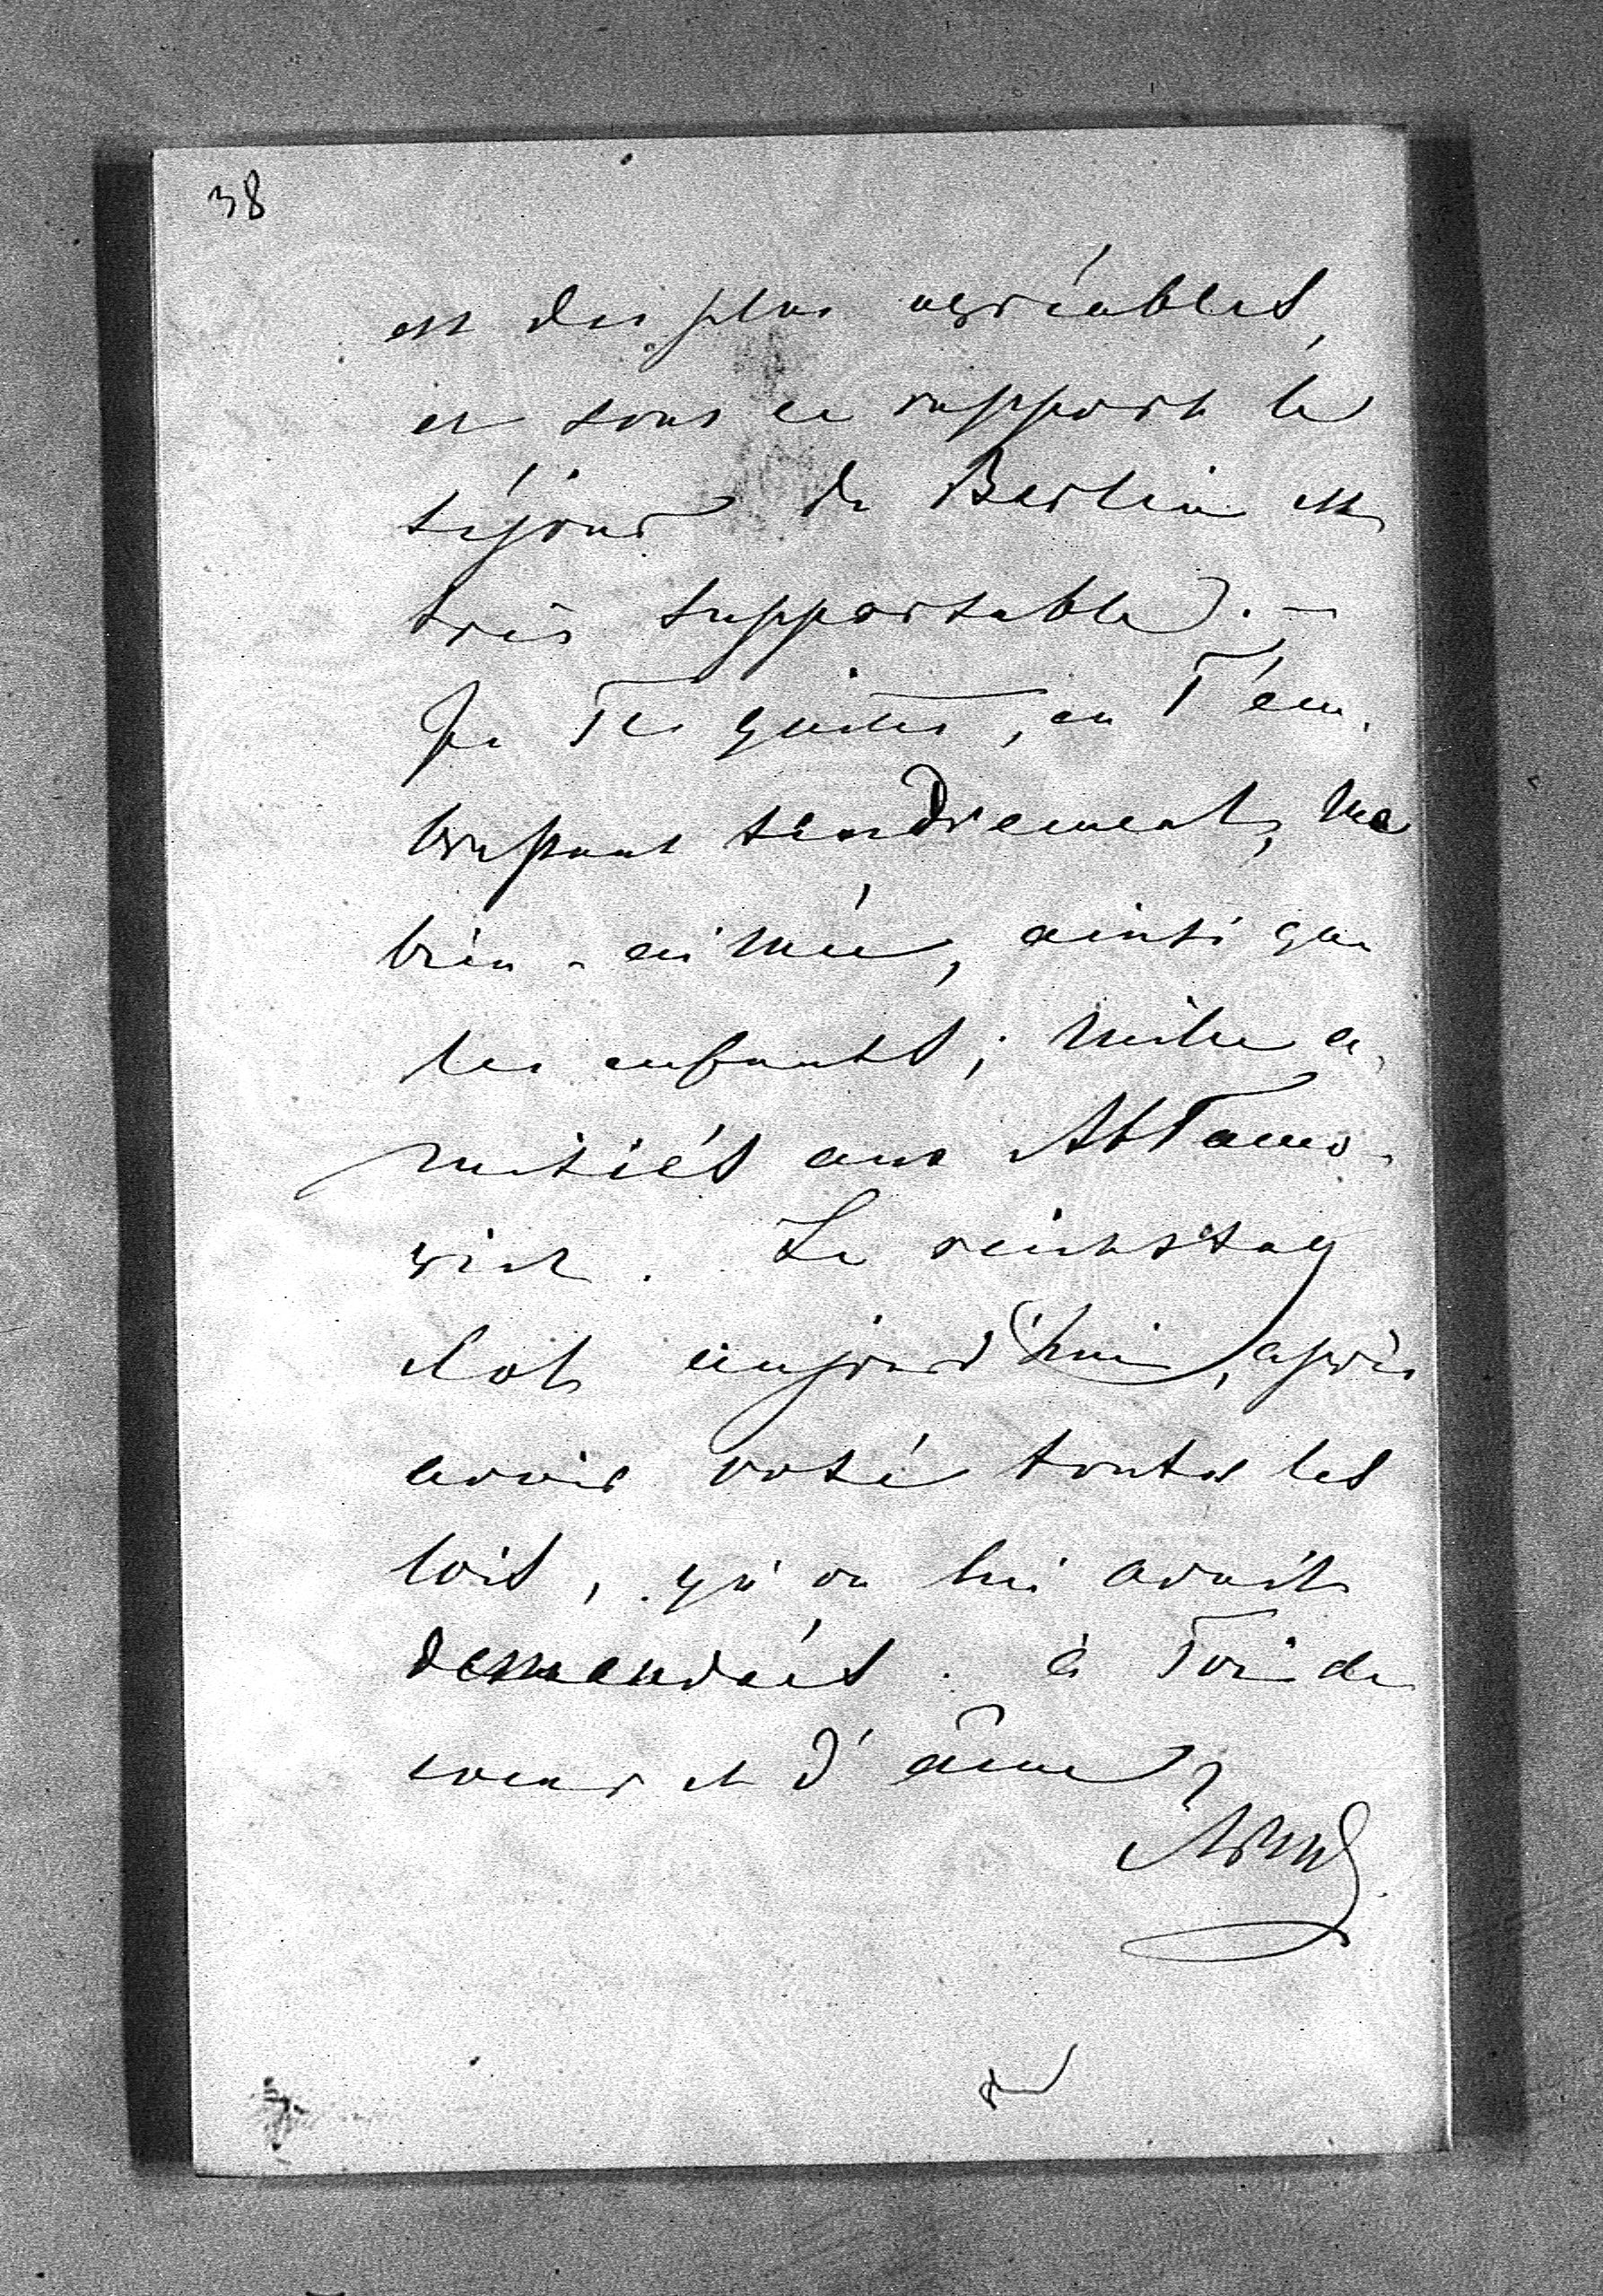 38
est des plus agréables,
et sous ce rapport le
séjour de Berlin est
très supportable. —
Je Te quitte, en T'em-
brassant tendrement, ma
bien-aimée, ainsi que
les enfants; mille a-
mitiés aux
Le reichstag
clot aujourd'hui, après
avoir voté toutes les
lois, qu'on lui avait
demandées. à Toi de
coeur et d'âme